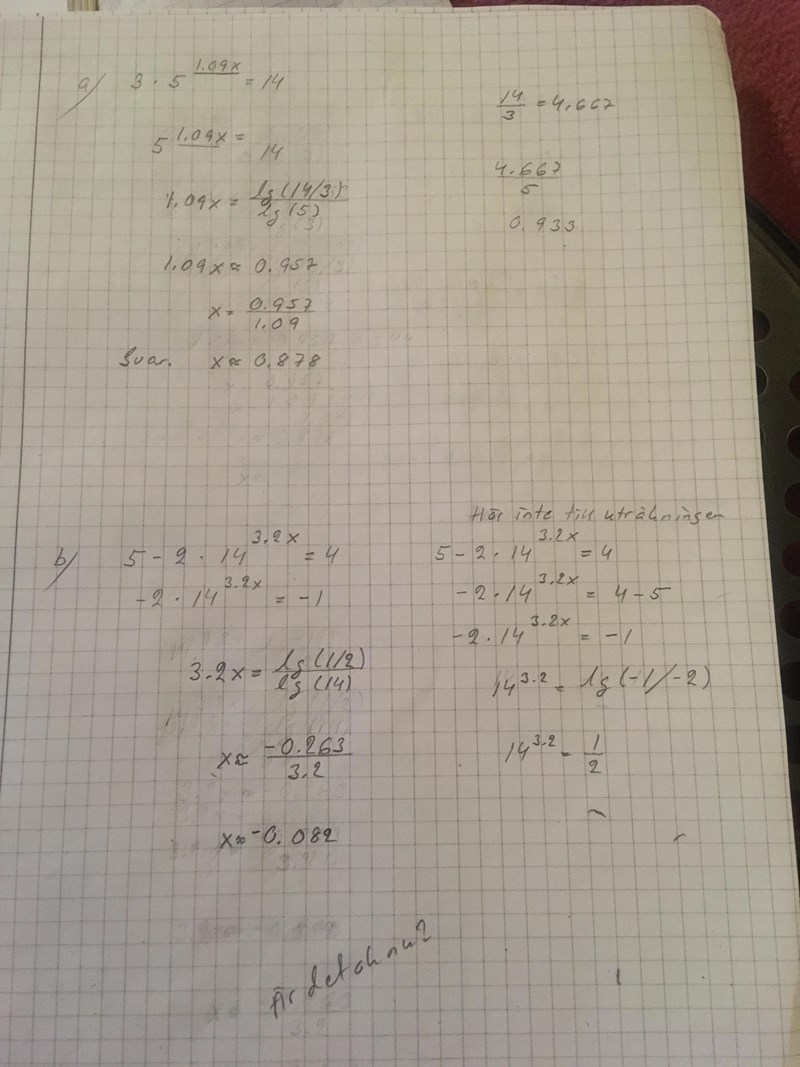 a) 3 · 5^1.09x = 14
5^1.09x = 14
1.09x = lg(14/3) / lg(5)
1.09x ≈ 0.957
x = 0.957 / 1.09
Svar. x ≈ 0.878
14/3 = 4.667
4.667 / 5
0.933
b) 5 - 2 · 14^3.2x = 4
-2 · 14^3.2x = -1
3.2x = lg(1/2) / lg(14)
x ≈ -0.263 / 3.2
x ≈ -0.082
Hör inte till uträkningen
5 - 2 · 14^3.2x = 4
-2 · 14^3.2x = 4 - 5
-2 · 14^3.2x = -1
14^3.2 = lg(-1/-2)
14^3.2 = 1/2
Är det ok nu?